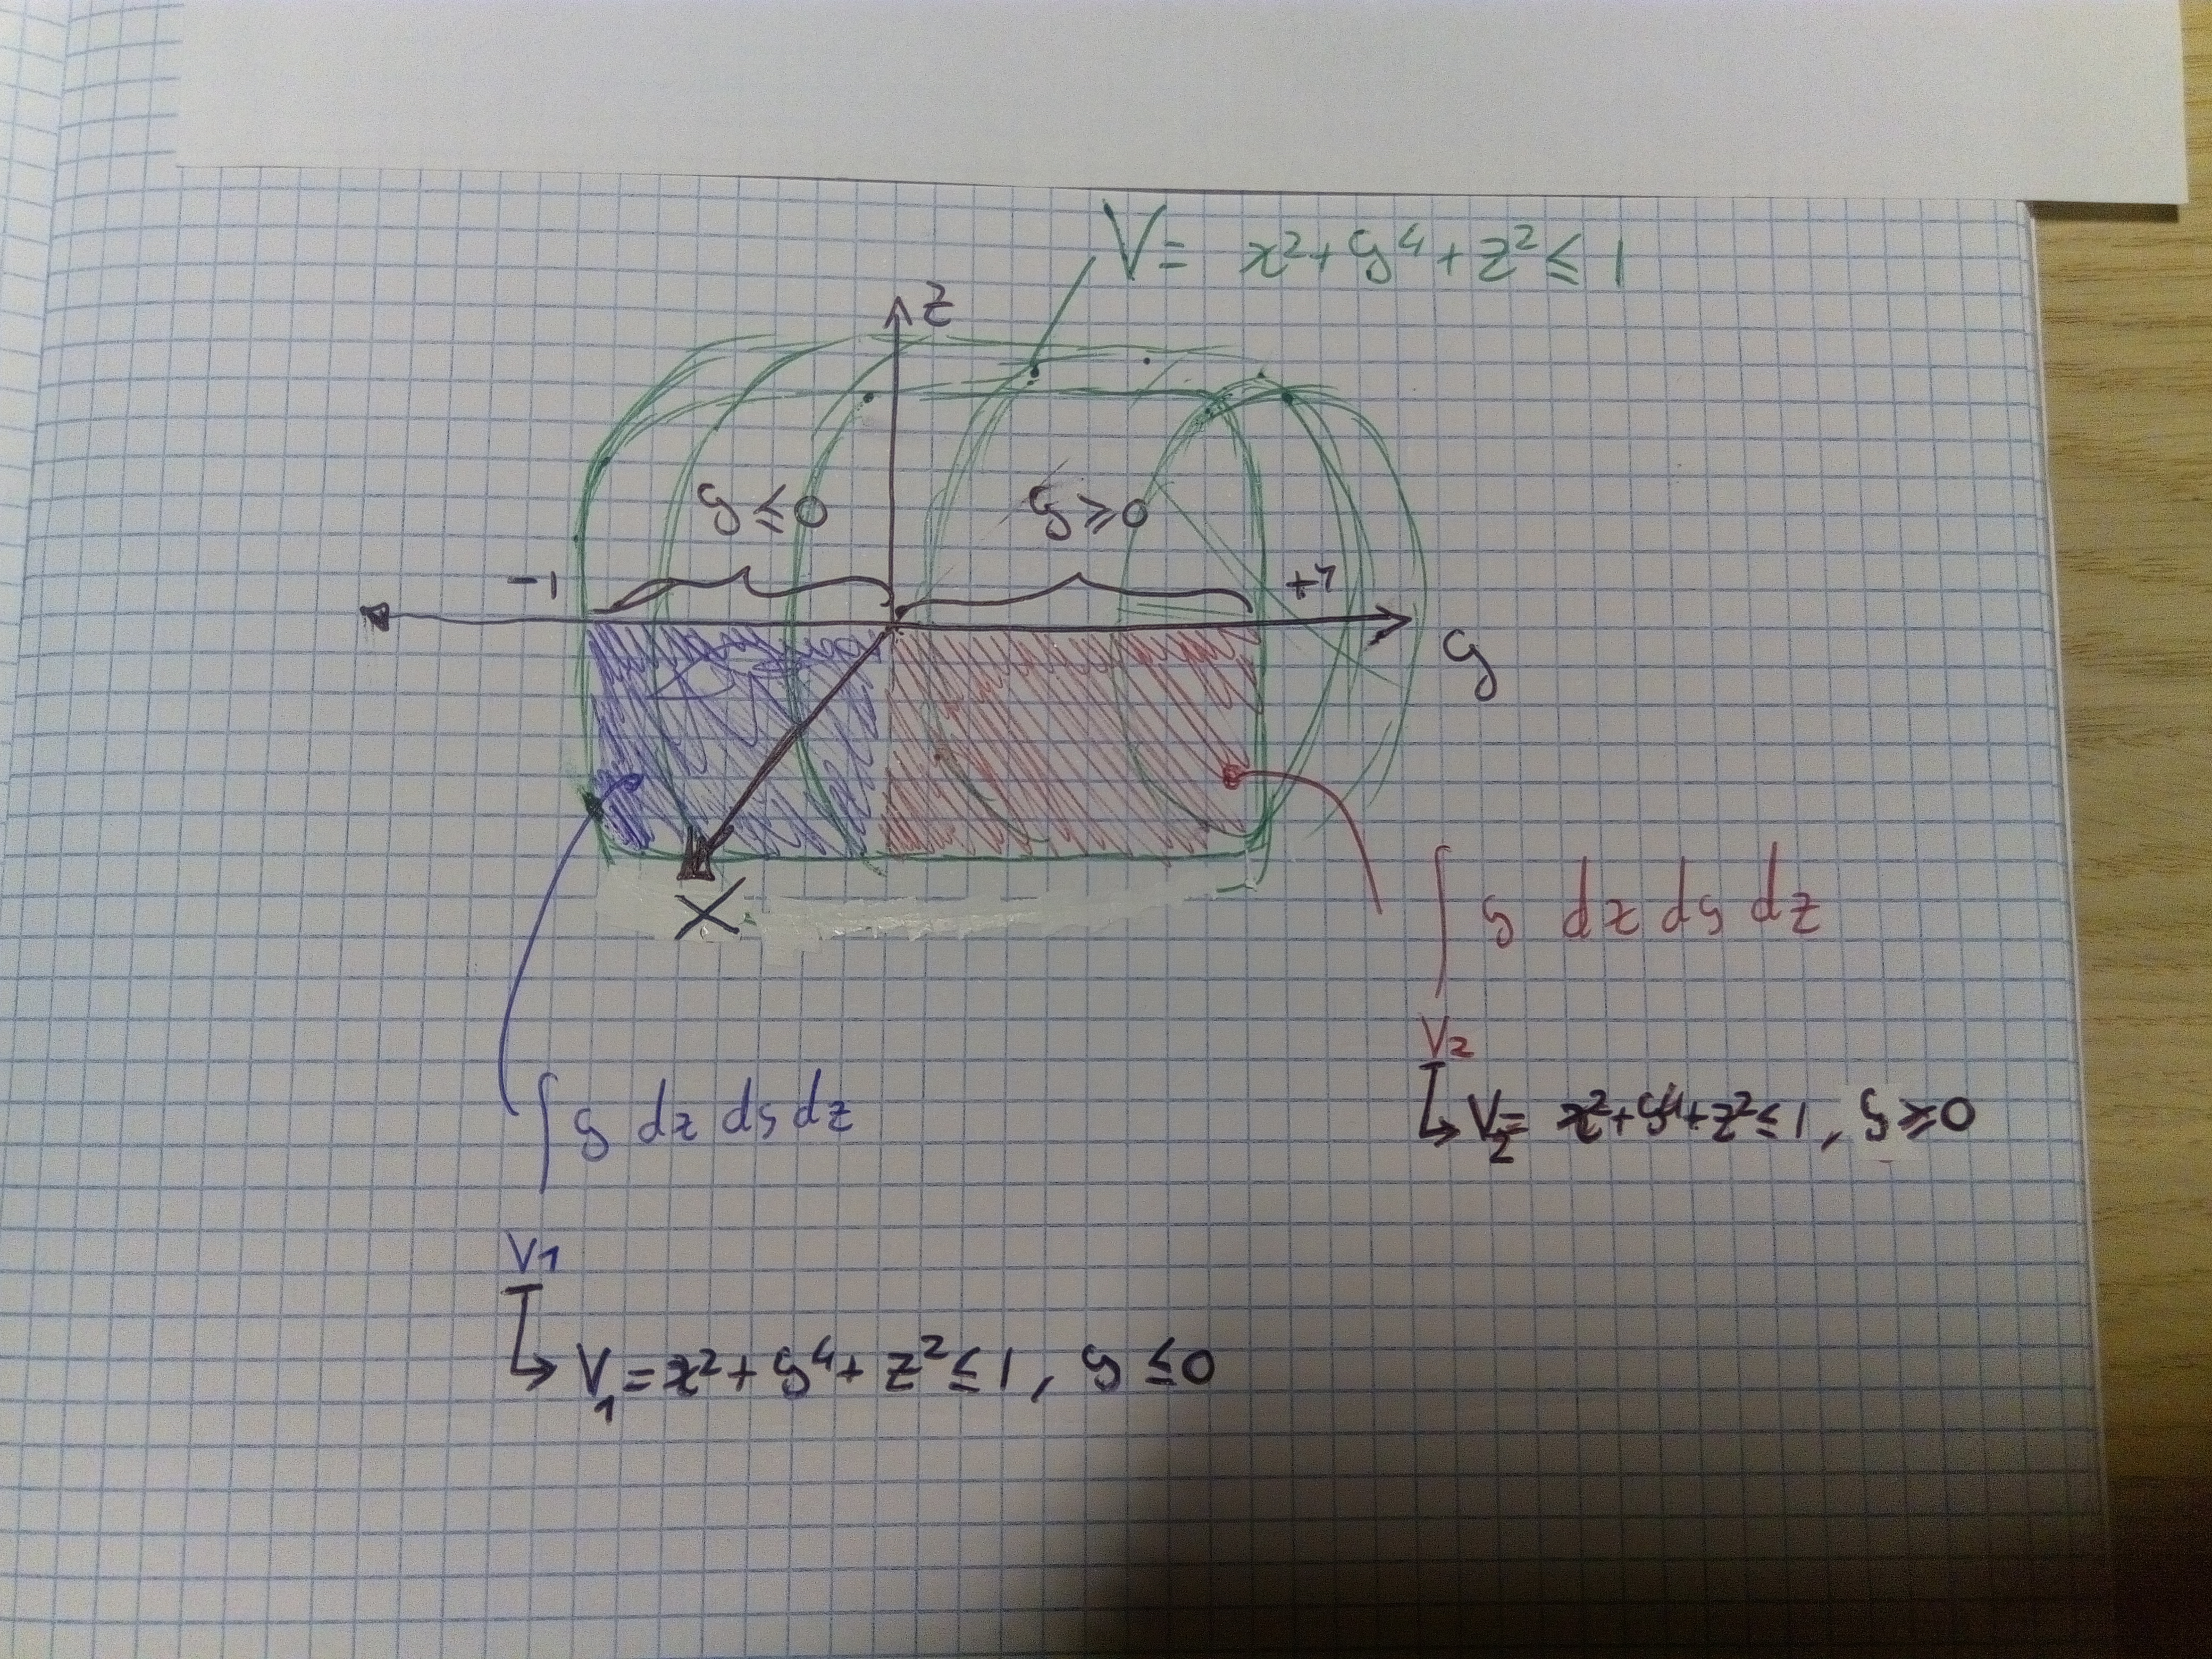 V= x²+y⁴+z²≤1
z
y≤0
y≥0
-1
+1
y
x
∫ y dx dy dz
V2
V₂= x²+y⁴+z²≤1, y≥0
∫ y dx dy dz
V1
V₁=x²+y⁴+z²≤1, y≤0